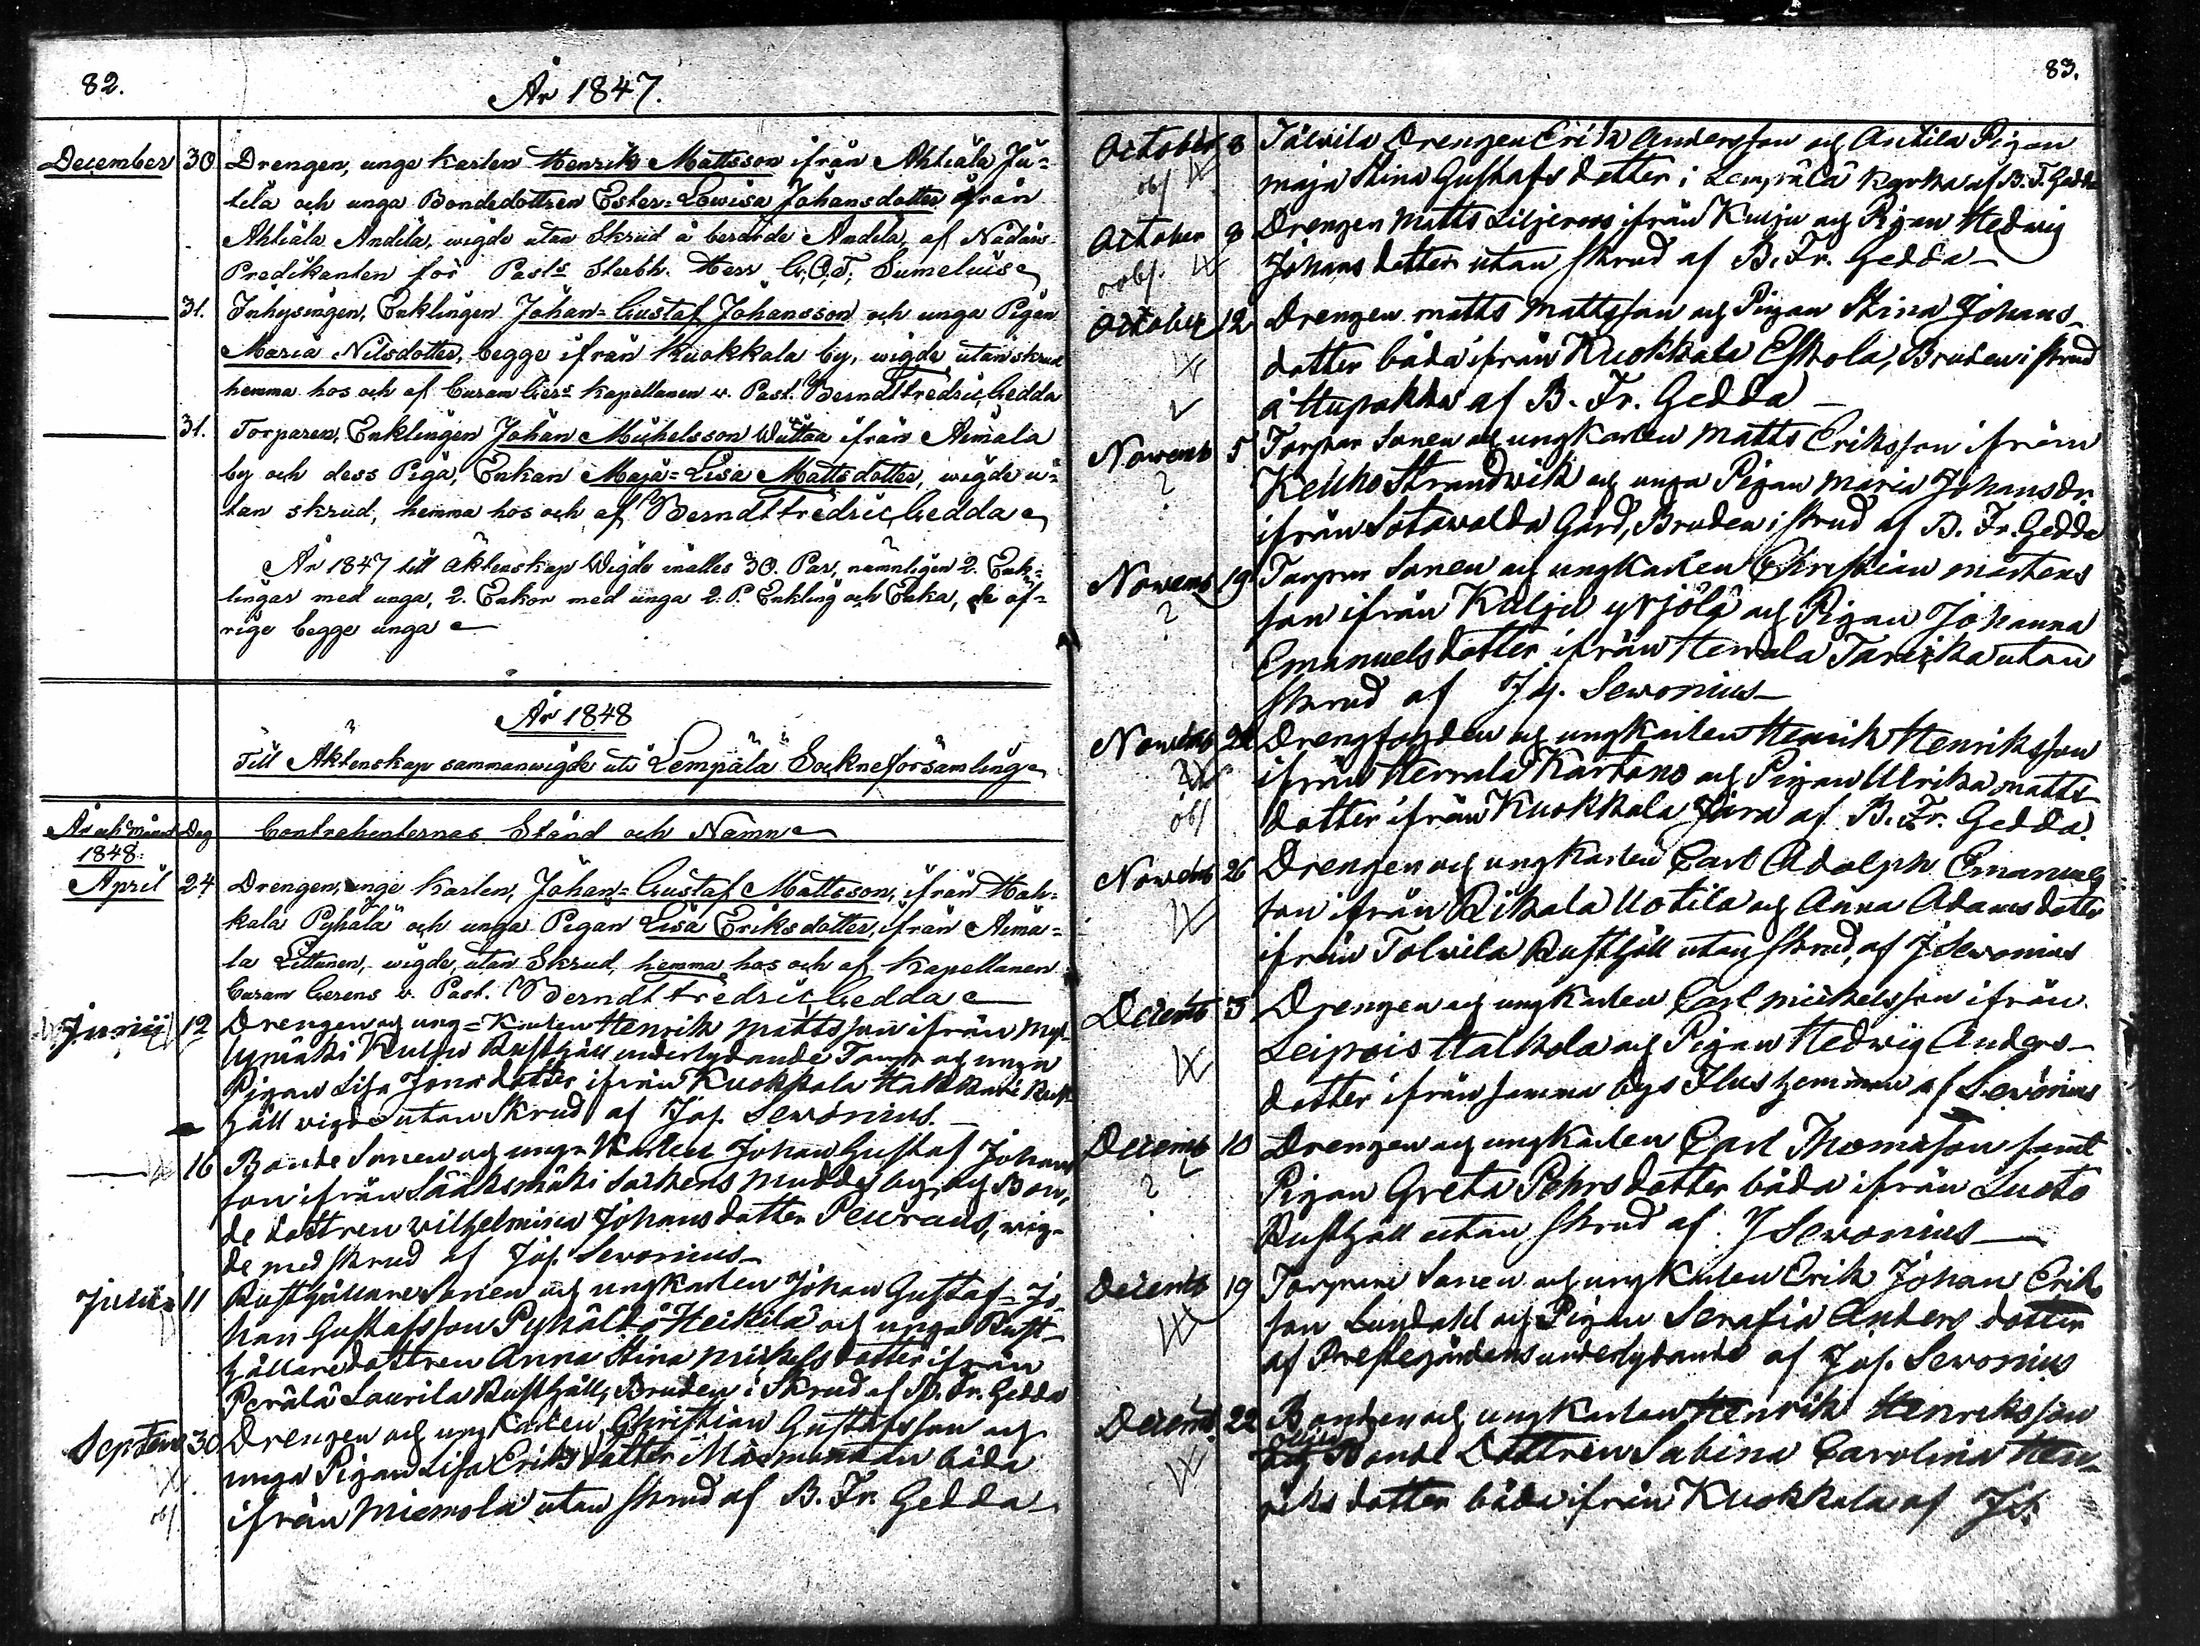 82.
År 1847.
December 30 Drengen, unge karlen Henrik Mattsson ifrån Ahtiala Ju=
tila och unga Bondedottren Ester=Lowisa Johansdotter ifrån
Ahtiala Andila, wigde utan Skrud å berörde Andila, af Nådårs-
Predikanten för Past:s Sterbh. Herr G. O. T. Sumelius
31. Inhysingen, Enklingen Johan=Gustaf Johansson och unga Pigan
Maria Nilsdotter, begge ifrån Kuokkala by, wigde utan skrud
hemma hos och af Curam Ger:s Kapellanen v. Past. Berndt Fredric Gedda
31. Torparen, Enklingen Johan Michelsson Wuttaa ifrån Aimala
by och dess Piga, Enkan Maja=Lisa Mattsdotter, wigde u=
tan skrud, hemma hos och af Berndt Fredric Gedda
År 1847 till Äktenskap Wigde inalles 30. Par, nämnligen 2. Enk=
lingar med unga, 2. Enkor med unga 2. P. Enkling och Enka, de öf=
rige begge unga
År 1848
Till Äktenskap sammanwigde uti Lempälä Sokneförsamling
År och Månad Dag Contrahenternas Stånd och Namn
1848.
April 24 Drengen, unge Karlen, Johan=Gustaf Mattsson, ifrån Hak-
kala Pyhälä och unga Pigan Lisa Eriksdotter, ifrån Aima=
la Littunen, wigde, utan Skrud, hemma hos och af Kapellanen
Curam Gerens v. Past. Berndt Fredric Gedda
Junii 12 Drengen och ung=Karlen Henrik Mattsson ifrån Myl-
lymäki Kulju Rusthåll underlydande Torp och unga
Pigan Lisa Jonasdotter ifrån Kuokkala Hakkari Rust
håll wigde utan Skrud af Joh. Sewonius.
16 Bonde Sonen och unga Karlen Johan Gustaf Johans
son ifrån Sääksmäki Sockens by, och Bon,
de dottren Wilhelmina Johansdotter Peuraus, wig-
de med skrud af Joh. Sewonius
Julii 11 Rusthållare Sonen och ungkarlen Johan Gustaf Jo
han Gustafsson Pyhältö Heikilä och unga Rust-
hållaredottren Anna Stina Michelsdotter ifrån
Perälä Laurila Rusthåll, Bruden i Skrud af B. Fr. Gedda
Septem 30 Drengen och ungkarlen Christian Gustafsson och
unga Pigan Lisa Eriksdotter båda
ifrån Miemola utan skrud af B. Fr. Gedda
83.
October 8 Tolvila Drengen Erik Andersson och Anttila Pigan
obf Maja Stina Gustafsdotter i Lempälä kyrka af B. F. Gedda
October 8 Drengen Matts Liljeroos ifrån Kulju och Pigan Hedwig
Johansdotter utan skrud af B. Fr. Gedda
October 12 Drengen Matts Mattsson och Pigan Stina Johans-
dotter båda ifrån Kuokkala Eskola, Bruden i skrud
å Hupakka af B. Fr. Gedda
Novemb 5 Torpar Sonen och ungkarlen Matts Eriksson ifrån
? Keuho Strandwik och unga Pigan Maria Johansdr
ifrån Sotawalda Gård, Bruden i skrud af B. Fr. Gedda
Novemb 19 Torpar Sonen och ungkarlen Christian Mårtens
? son ifrån Kulju Yrjölä och Pigan Johanna
Emanuelsdotter ifrån Herrala Taricka utan
skrud af Joh. Sewonius
Novemb Drengfogden och ungkarlen Henrik Henriksson
ifrån Herrala Kartano och Pigan Ulrika Matts
obf dotter ifrån Kuokkala Jåra af B. Fr. Gedda.
Novemb 26 Drengen och ungkarlen Carl Adolph Emanuels
son ifrån Rikala Uotila och Anna Adamsdotter
ifrån Tolvila Rusthåll utan skrud, af J Sewonius
Decemb 3 Drengen och ungkarlen Carl Michelsson ifrån
Leipois Halkola och Pigan Hedwig Anders-
dotter ifrån samma bys Ilus hemman af Sewonius
Decemb 10 Drengen och ungkarlen Carl Thomasson samt
? Pigan Greta Pehrsdotter båda ifrån Lusto
Rusthåll utan skrud af J Sewonius
Decemb 19 Torpare Sonen och ungkarlen Erik Johan Eriks
son Lundahl och Pigan Serafia Andersdotter
af Prestegårdens underlydande af Joh. Sewonius
Decemb. 22 Bonden och ungkarlen Henrik Henriksson
och Bonde Dottren Sabina Carolina Hen-
riksdotter båda ifrån Kuokkala af JS.